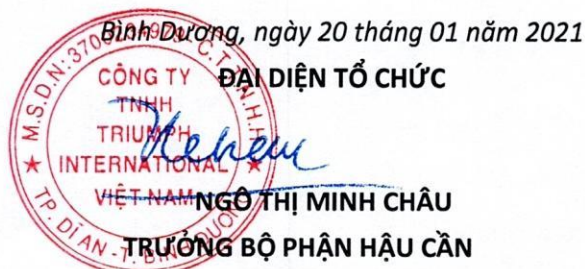 Bình Dương, ngày 20 tháng 01 năm 2021
ĐẠI DIỆN TỔ CHỨC
CÔNG TY
TNHH
TRIUMPH
INTERNATIONAL
VIỆT NAM
TP. DĨ AN - T. BÌNH DƯƠNG
NGÔ THỊ MINH CHÂU
TRƯỞNG BỘ PHẬN HẬU CẦN